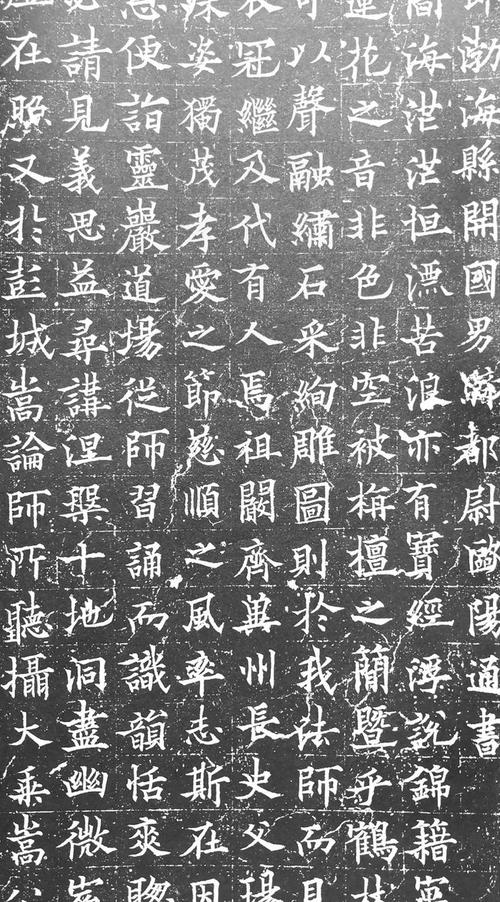 渤海縣開國男騎都尉歐陽通書
海茫茫恒漂苦浪亦有寶經浮說錦籍寓
蓮花之音非色非空被栴檀之簡暨乎鶴林
可以聲融繡石采絢雕圖則於我法師而見
衣冠繼及代有人焉祖闞齊冀州長史父瑒
殊姿獨茂孝愛之節慈順之風率志斯在因
便詣靈巖道場從師習誦而識韻恬爽聰
請見義思益尋講涅槃十地洞盡幽微宿
在照又於彭城嵩論師所聽攝大乘嵩公